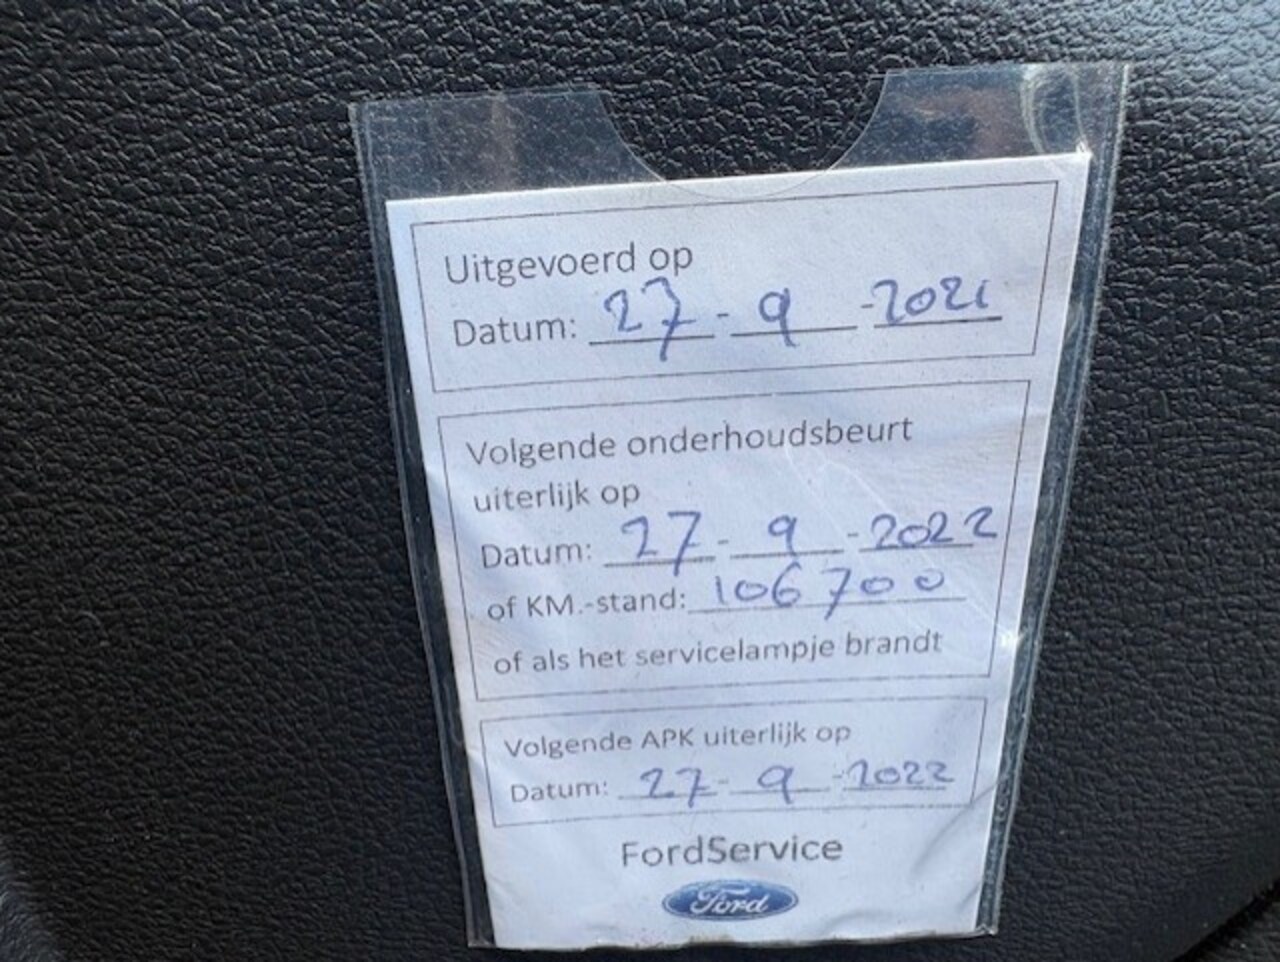 Uitgevoerd op
Datum: 27 - 9 - 2021
Volgende onderhoudsbeurt
uiterlijk op
Datum: 27 - 9 - 2022
of KM.-stand: 106700
of als het servicelampje brandt
Volgende APK uiterlijk op
Datum: 27 - 9 - 2022
FordService
Ford